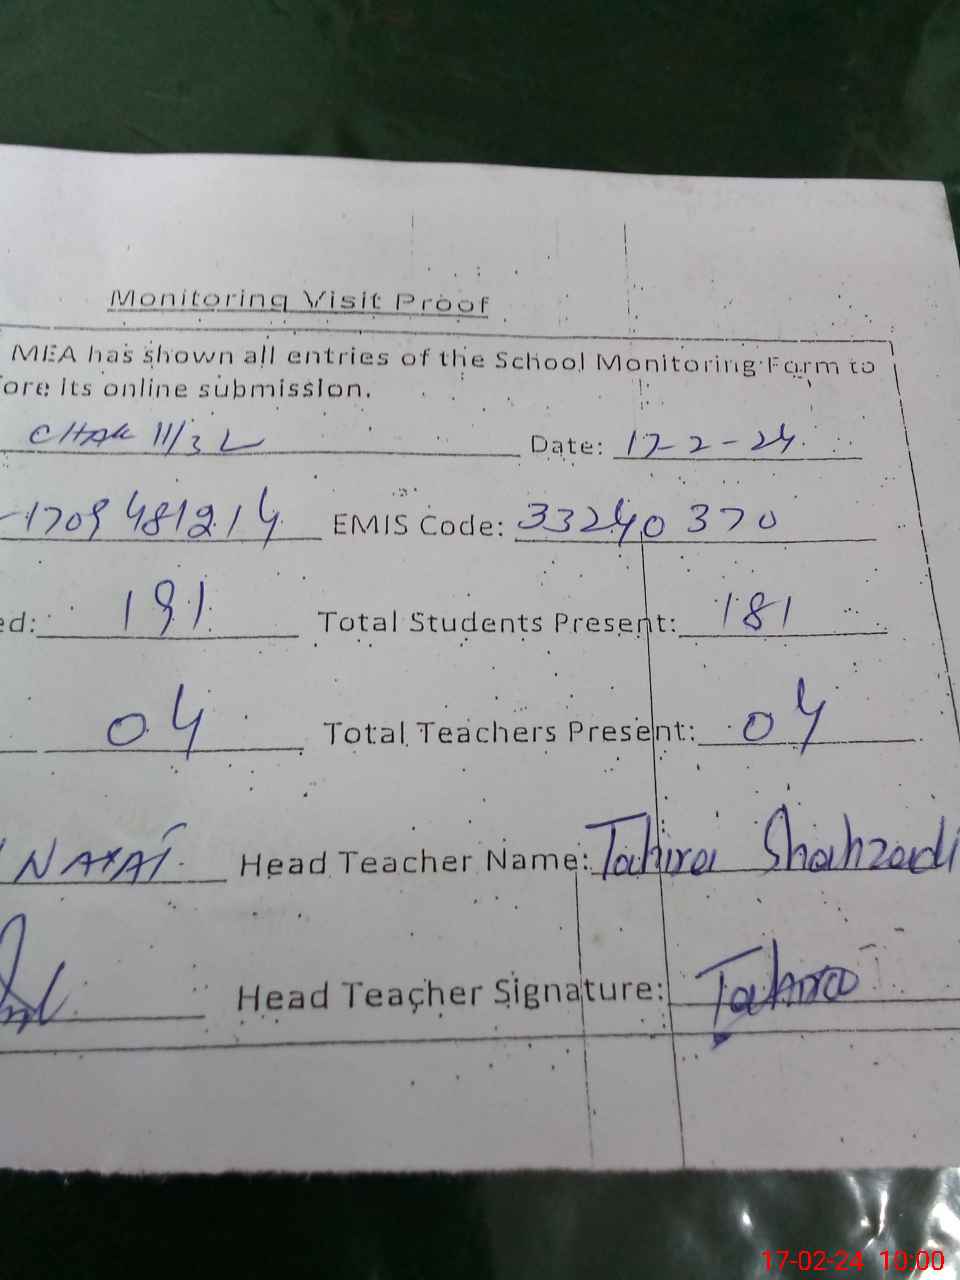 Monitoring Visit Proof
MEA has shown all entries of the School Monitoring Form to
ore its online submission.
CHAK 11/3 L Date: 17-2-24
-1709481214 EMIS Code: 33240370
ed: 191 Total Students Present: 181
04 Total Teachers Present: 04
Head Teacher Name: Tahira Shahzadi
Head Teacher Signature: Tahira
17-02-24 10:00